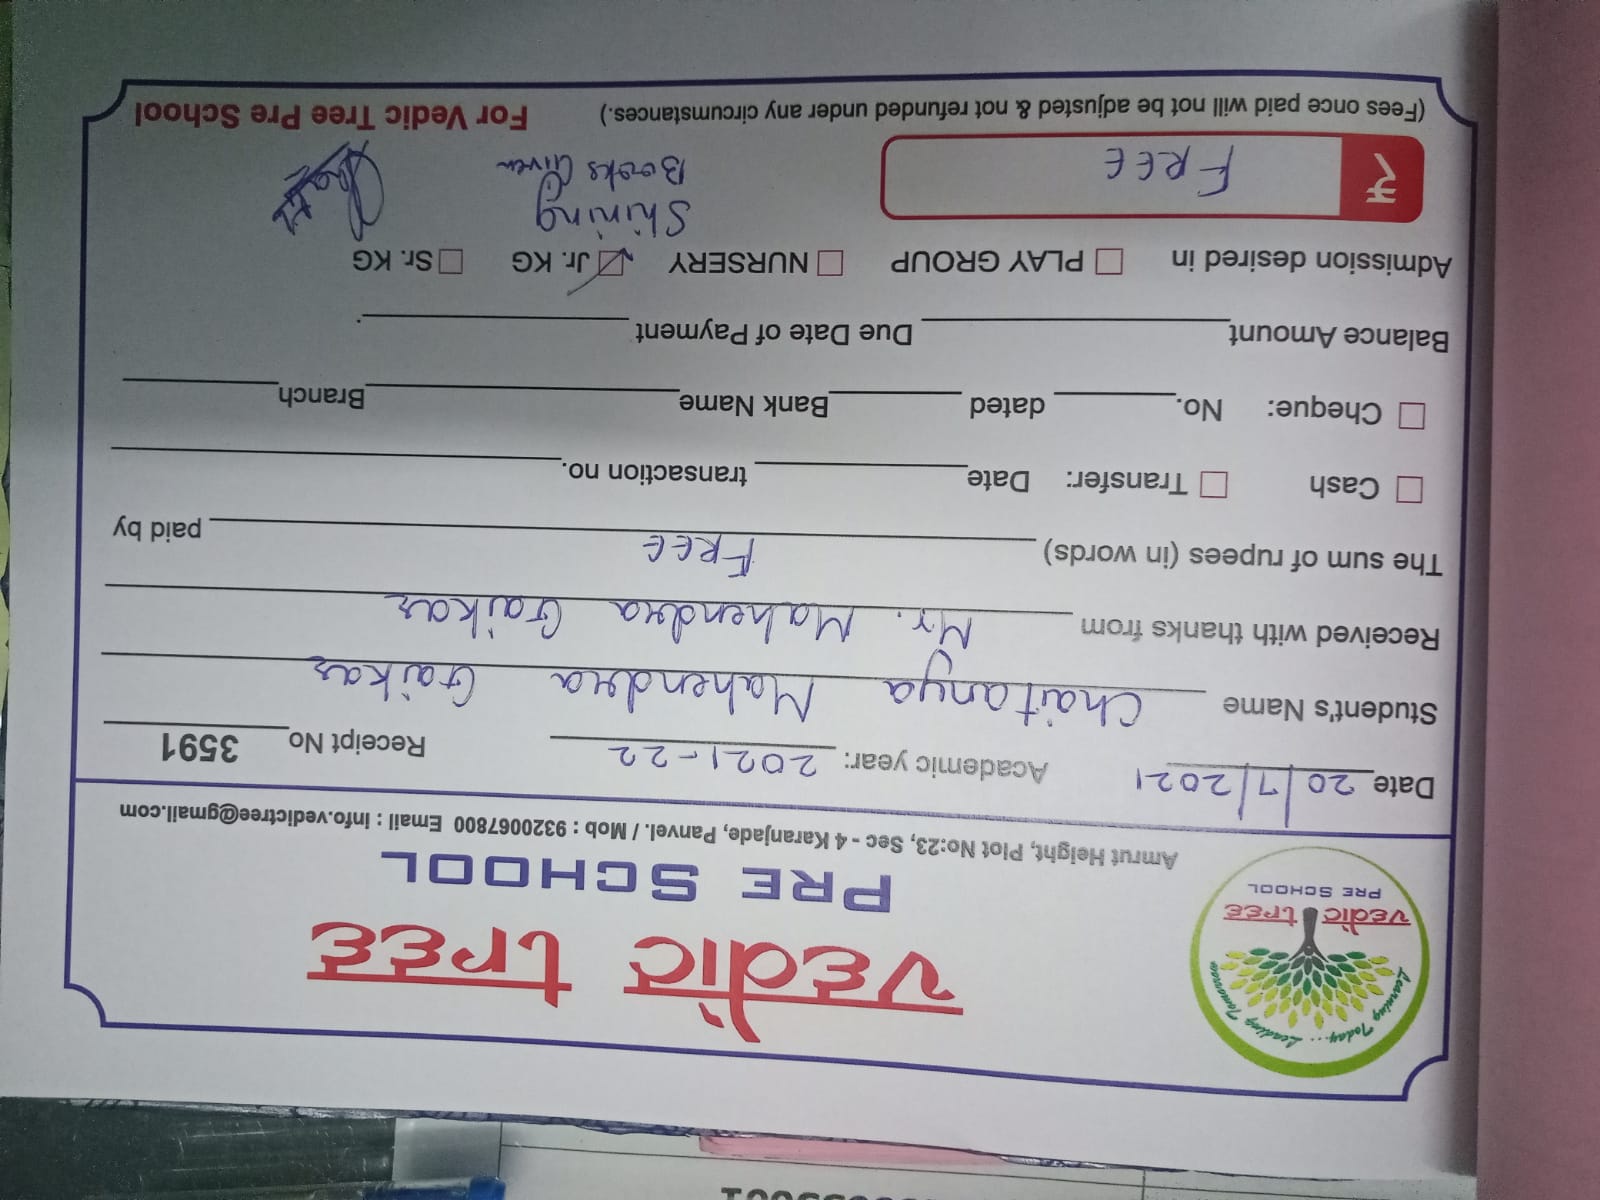 Learning Today... Leading Tomorrow
vedic tree
PRE SCHOOL
vedic tree
PRE SCHOOL
Amrut Height, Plot No:23, Sec - 4 Karanjade, Panvel. / Mob : 9320067800 Email : Info.vedictree@gmail.com
Date 20/7/2021 Academic year: 2021-22 Receipt No 3591
Student's Name Chaitanya Mahendra Gaikar
Received with thanks from Mr. Mahendra Gaikar
The sum of rupees (in words) FREE paid by
Cash Transfer: Date transaction no.
Cheque: No. dated Bank Name Branch
Balance Amount Due Date of Payment .
Admission desired in PLAY GROUP NURSERY Jr. KG Sr. KG
₹ FREE
Shining
Books Given
(Fees once paid will not be adjusted & not refunded under any circumstances.) For Vedic Tree Pre School